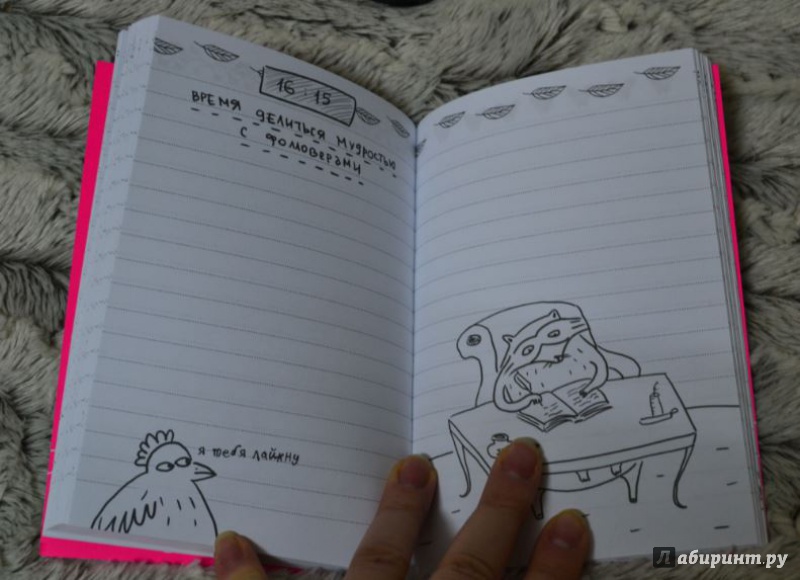 16:15
ВРЕМЯ ДЕЛИТЬСЯ МУДРОСТЬЮ
С ФОЛОВЕРАМИ
я тебя лайкну
Лабиринт.ру